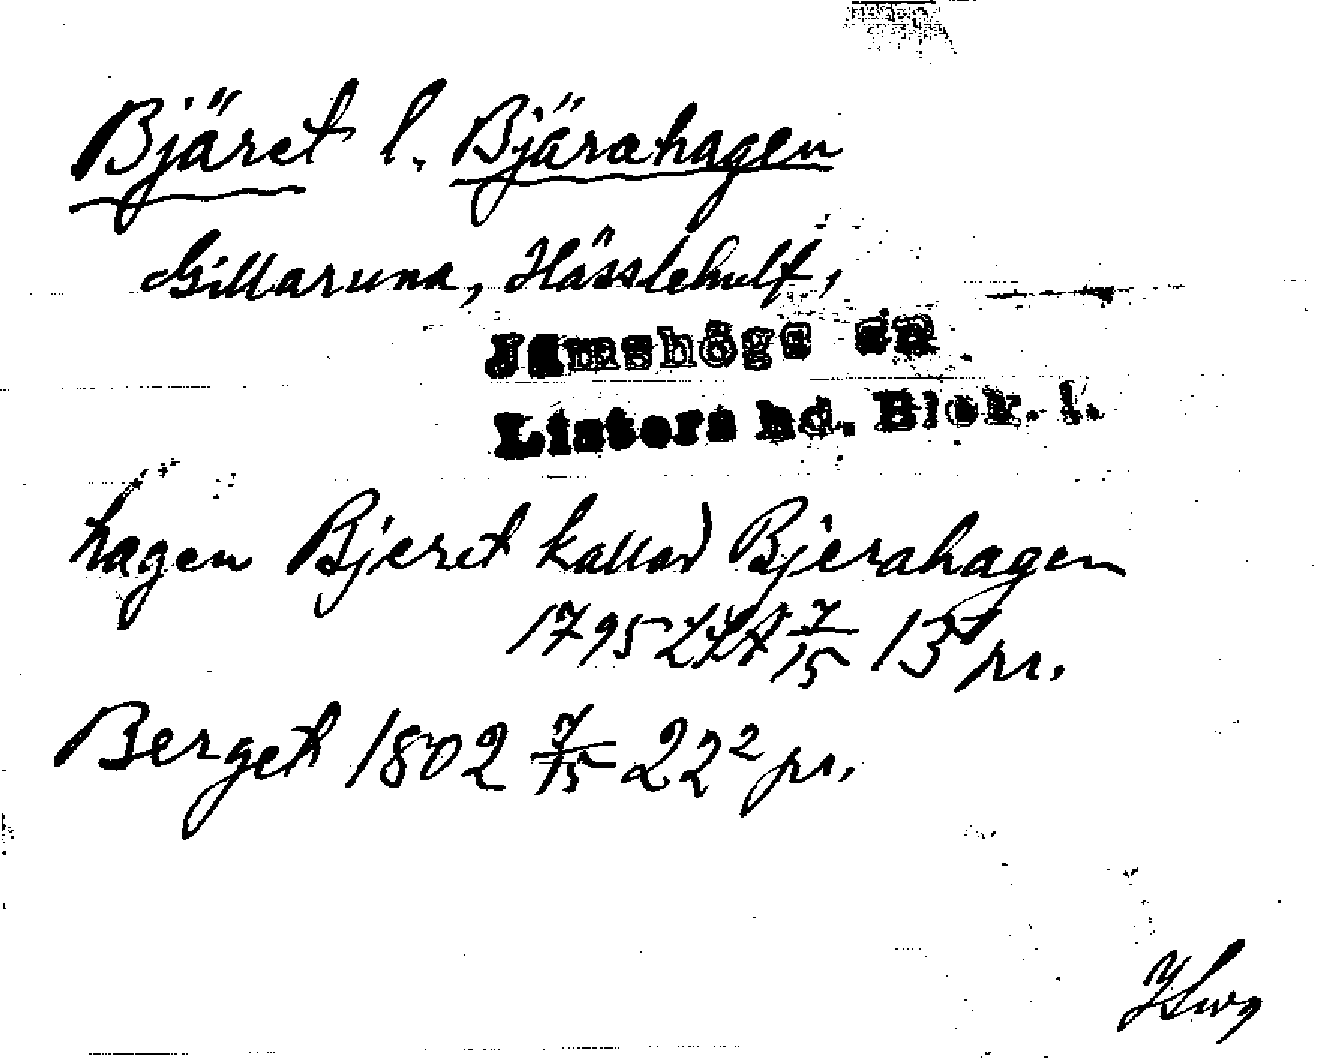 Bjäret l. Bjärahagen
Gillaruna, Hässlehult,
Jämshögs sn
Listers hd. Blek. l.
hagen Bjeret kallad Bjerahagen
1795 7/15 13 pr.
Berget 1802 7/15 22² pr.